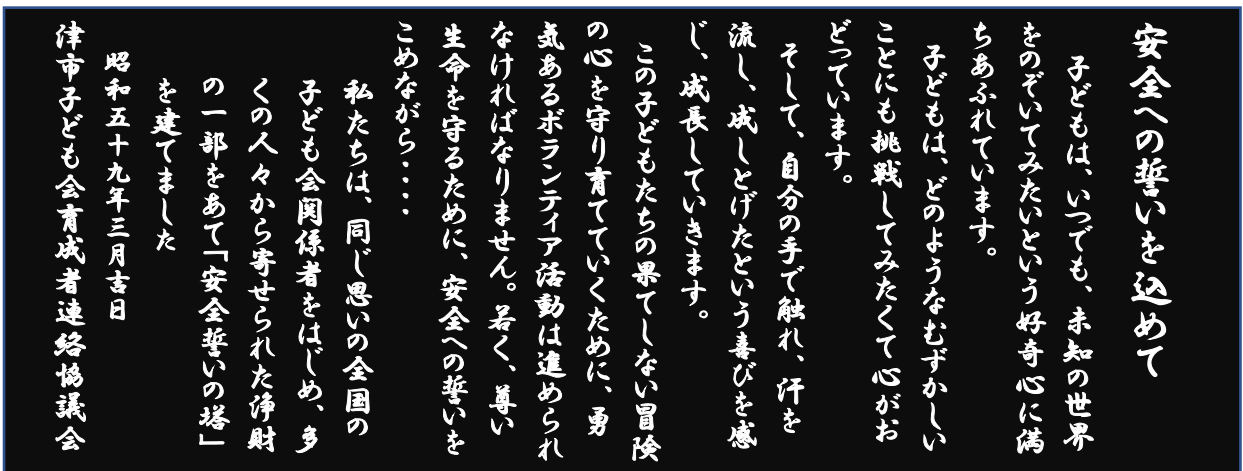 安全への誓いを込めて
子どもは、いつでも、未知の世界
をのぞいてみたいという好奇心に満
ちあふれています。
子どもは、どのようなむずかしい
ことにも挑戦してみたくて心がお
どっています。
そして、自分の手で触れ、汗を
流し、成しとげたという喜びを感
じ、成長していきます。
この子どもたちの果てしない冒険
の心を守り育てていくために、勇
気あるボランティア活動は進められ
なければなりません。若く、尊い
生命を守るために、安全への誓いを
こめながら・・・・
私たちは、同じ思いの全国の
子ども会関係者をはじめ、多
くの人々から寄せられた浄財
の一部をあて「安全誓いの塔」
を建てました
昭和五十九年三月吉日
津市子ども会育成者連絡協議会